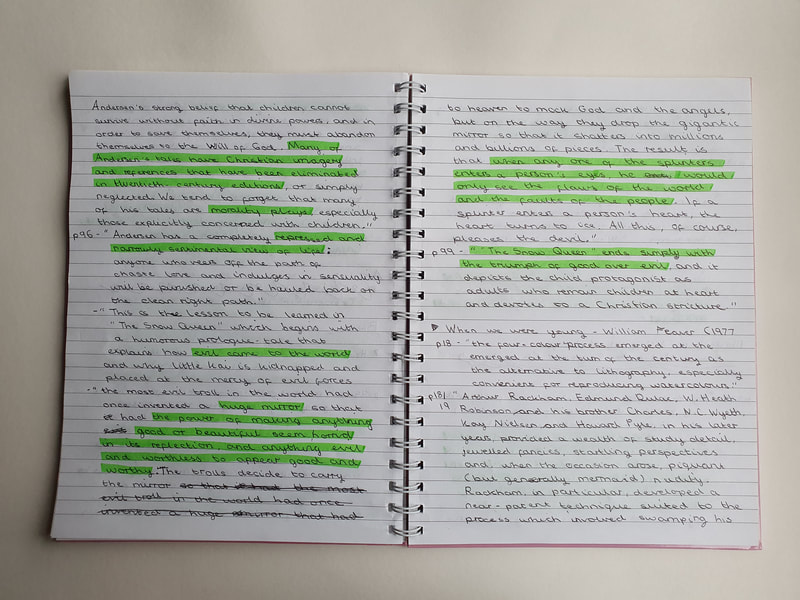 Andersen's strong belief that children cannot
survive without faith in divine powers, and in
order to save themselves, they must abandon
themselves to the Will of God. Many of
Andersen's tales have Christian imagery
and references that have been eliminated
in twentieth-century editions, or simply
neglected. We tend to forget that many
of his tales are morality plays, especially
those explicitly concerned with children."
p96 - "Andersen has a completely repressed and
narrowly sentimental view of life:
anyone who veers off the path of
chaste love and indulges in sensuality
will be punished or be hauled back on
the clean right path."
- "This is the lesson to be learned in
"The Snow Queen" which begins with
a humorous prologue-tale that
explains how evil came to the world
and why little Kai is kidnapped and
placed at the mercy of evil forces
- "the most evil troll in the world had
once invented a huge mirror so that
it had the power of making anything
good or beautiful seem horrid
in its reflection and anything evil
and worthless to appear good and
worthy. The trolls decide to carry
the mirror so that had the most
evil troll in the world had once
invented a huge mirror that had
to heaven to mock God and the angels,
but on the way they drop the gigantic
mirror so that it shatters into millions
and billions of pieces. The result is
that when any one of the splinters
enters a person's eyes, he would
only see the flaws of the world
and the faults of the people. If a
splinter enters a person's heart, the
heart turns to ice. All this, of course,
pleases the devil."
p99 - "The Snow Queen" ends simply with
the triumph of good over evil, and it
depicts the child protagonist as
adults who remain children at heart
and devotes to a Christian structure"
When we were young - William Feaver (1977
p18 - "the four-colour process emerged at the
emerged at the turn of the century as
the alternative to lithography, especially
convenient for reproducing watercolours."
p18/ "Arthur Rackham, Edmund Dulac, W. Heath
19 Robinson and his brother Charles, N.C Wyeth,
Kay Nielsen and Howard Pyle, in his later
years, provided a wealth of study detail,
jewelled fancies, startling perspectives
and, when the occasion arose, piquant
(but generally mermaid) nudity.
Rackham, in particular, developed a
near-patent technique suited to the
process which involved swamping his